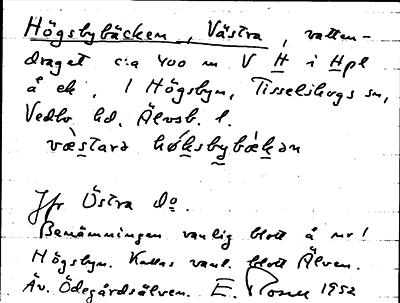 Högsbybäcken, Västra, vatten-
draget c:a 400 m V H i Hpl
å ek, 1 Högsbyn, Tisselskogs sn,
Vedbo hd, Älvsb. l.
væstarə høksbybækən
Jfr Östra do.
Benämningen vanlig blott å nr 1
Högsbyn. Kallas vanl. blott Älven.
Äv. Ödegårdsälven. E. 1952